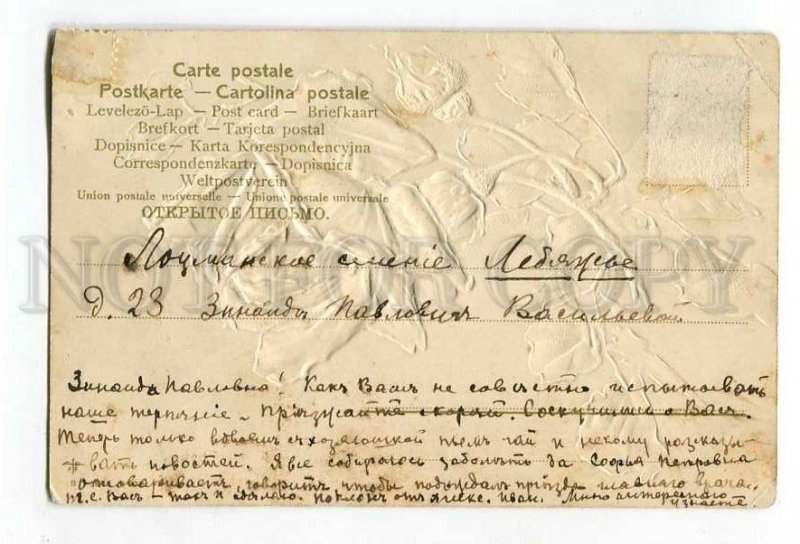 Carte postale
Postkarte — Cartolina postale
Levelező-Lap — Post card — Briefkaart
Brefkort — Tarjeta postal
Dopisnice — Karta Korespondencyjna
Correspondenzkarte — Dopisnica
Weltpostverein
Union postale universelle — Unione postale universale
ОТКРЫТОЕ ПИСЬМО.
NOT FOR COPY
Лоцманское селеніе Лебяжье
д. 23 Зинаидѣ Павловнѣ Васильевой
Зинаида Павловна! Какъ Вамъ не совѣстно испытывать
наше терпѣніе. Пріѣзжайте скорѣй. Соскучились о Васъ.
Теперь только вдвоемъ съ хозяюшкой пьемъ чай и некому разсказы
вать новостей. Я все собираюсь заболѣть да Софья Петровна
отговариваетъ, говоритъ, чтобы подождалъ пріѣзда главнаго врача,
т.е. Васъ — такъ и сдѣлаю. Поклонъ отъ Иван. Много интереснаго
узнаете.